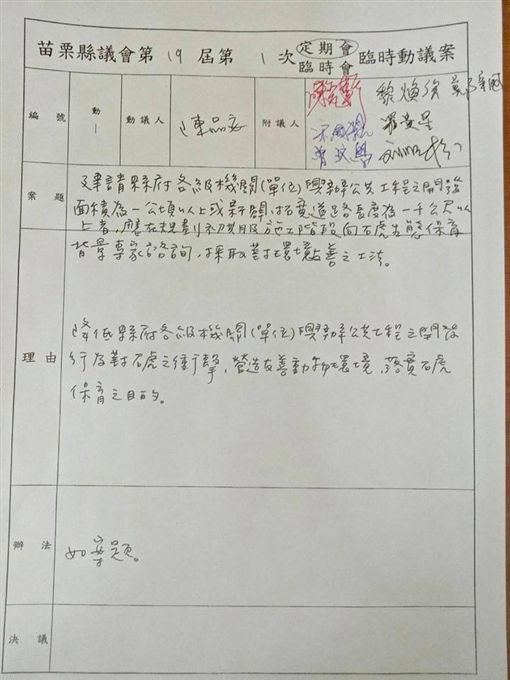 苗栗縣議會第19屆第1次定期會臨時會臨時動議案
編號 動1 動議人 陳品安 附議人 黎煥強 宋國鼎 曾玟學 羅貴星
案題 建請縣府各級機關(單位)興辦公共工程之開發
面積為一公頃以上或新闢、拓寬道路長度為一千公尺以
上者,應在規劃初期及施工階段向石虎生態保育
背景專家諮詢,採取對環境友善之工法。
理由 降低縣府各級機關(單位)興辦公共工程之開發
行為對石虎之衝擊,營造友善動物環境,落實石虎
保育之目的。
辦法 如案題。
決議